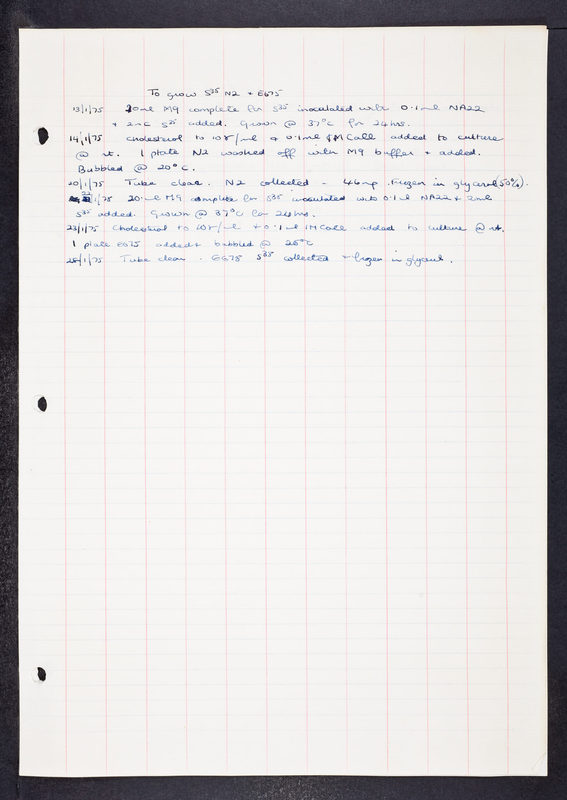 To grow S35 N2 + E675
13/1/75 20ml M9 complete for S35 inoculated with 0.1ml NA22
+ 2mC S35 added. Grown @ 37°C for 24hrs.
14/1/75 Cholesterol to 10γ/ml & 0.1ml 1M CaCl2 added to culture
@ rt. 1 plate N2 washed off with M9 buffer + added.
Bubbled @ 20°C.
20/1/75 Tube clear. N2 collected - Frozen in glycerol (50%).
22/1/75 20ml M9 complete for S35 inoculated with 0.1ml NA22 + 2mC
S35 added. Grown @ 37°C for 24hrs.
23/1/75 Cholesterol to 10γ/ml + 0.1ml 1M CaCl2 added to culture @ rt.
1 plate E675 added + bubbled @ 25°C
28/1/75 Tube clear. E675 S35 collected + frozen in glycerol.